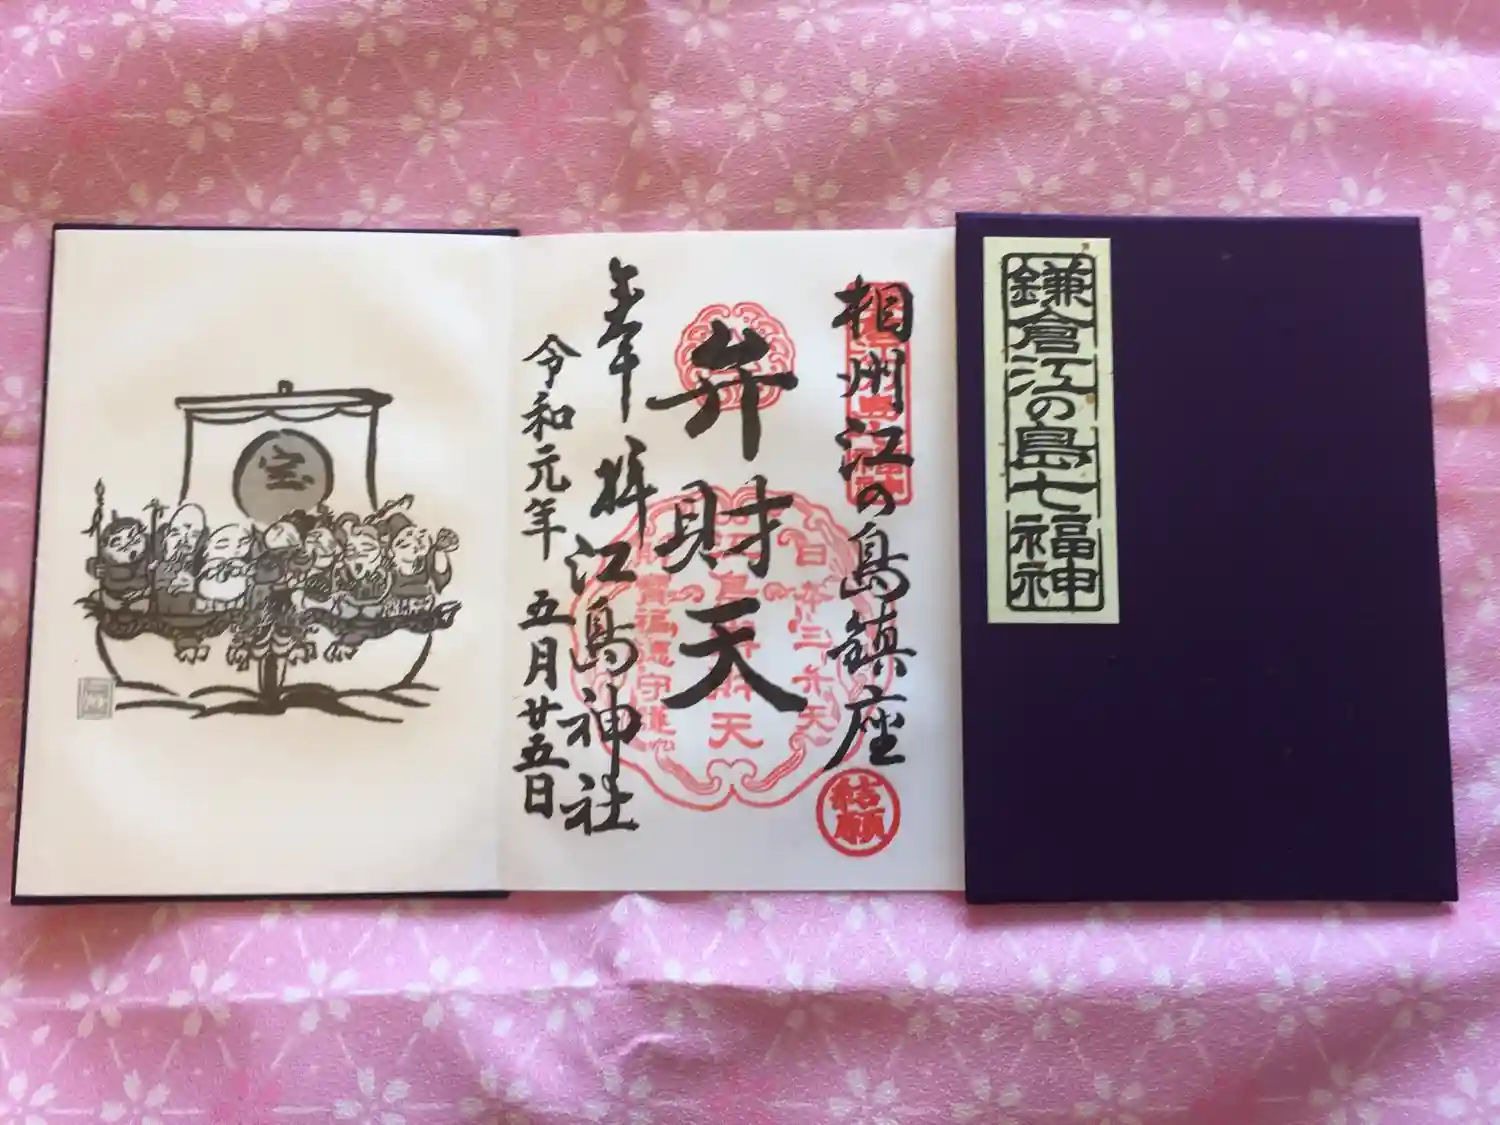 鎌倉江の島七福神
相州江の島鎮座
結願
弁財天
奉拝
江島神社
令和元年五月廿五日
日本三弁天
江島弁財天
宝